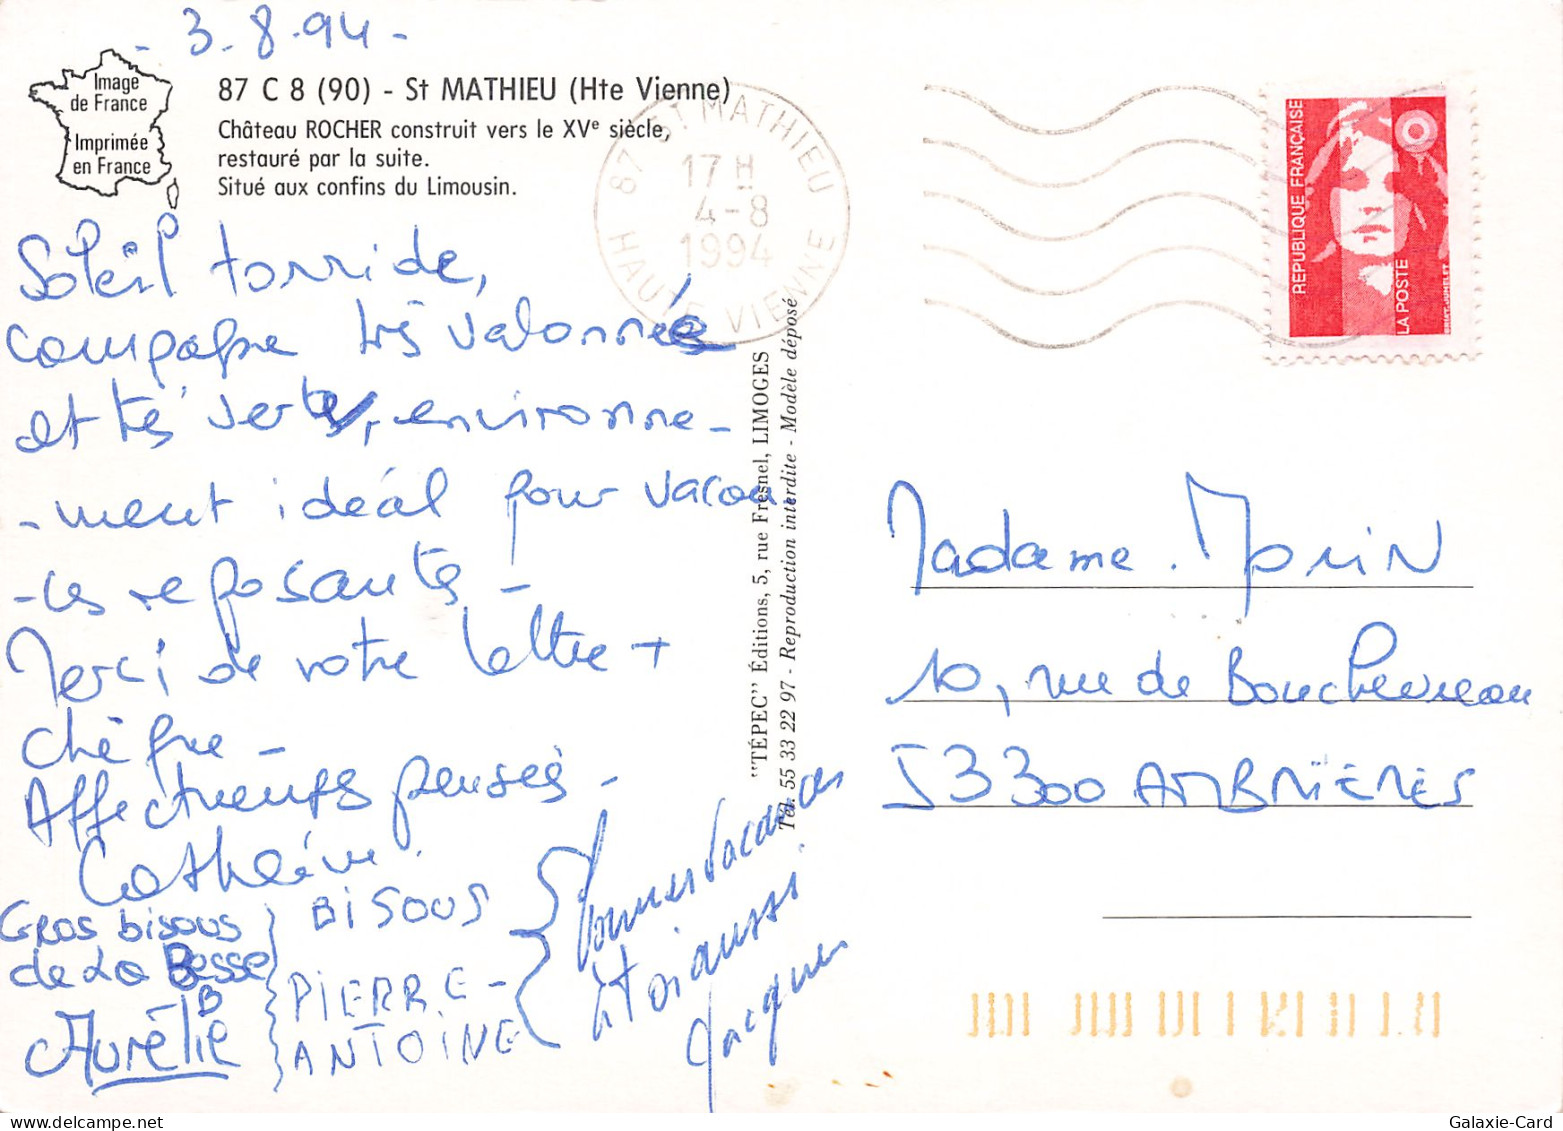 - 3.8.94 -
Image
de France
Imprimée
en France
87 C 8 (90) - St MATHIEU (Hte Vienne)
Château ROCHER construit vers le XVe siècle,
restauré par la suite.
Situé aux confins du Limousin.
87 ST MATHIEU
17 H
4-8
1994
HAUTE VIENNE
REPUBLIQUE FRANÇAISE
LA POSTE
Soleil torride,
campagne très valonnée
et très verte, environne-
-ment idéal pour vacan-
-ces reposantes -
Merci de votre lettre +
chèque -
Affectueuses pensées -
Cathérine.
Gros bisous
de La Besse
Aurélie
BISOUS
PIERRE-
ANTOINE
Bonnes vacances
à toi aussi
Jacques
"TÉPEC" Éditions, 5, rue Fresnel, LIMOGES
Tél. 55 33 22 97 - Reproduction interdite - Modèle déposé
Madame. Morin
10, rue de Boucheureau
53300 AMBRIÈRES
Galaxie-Card